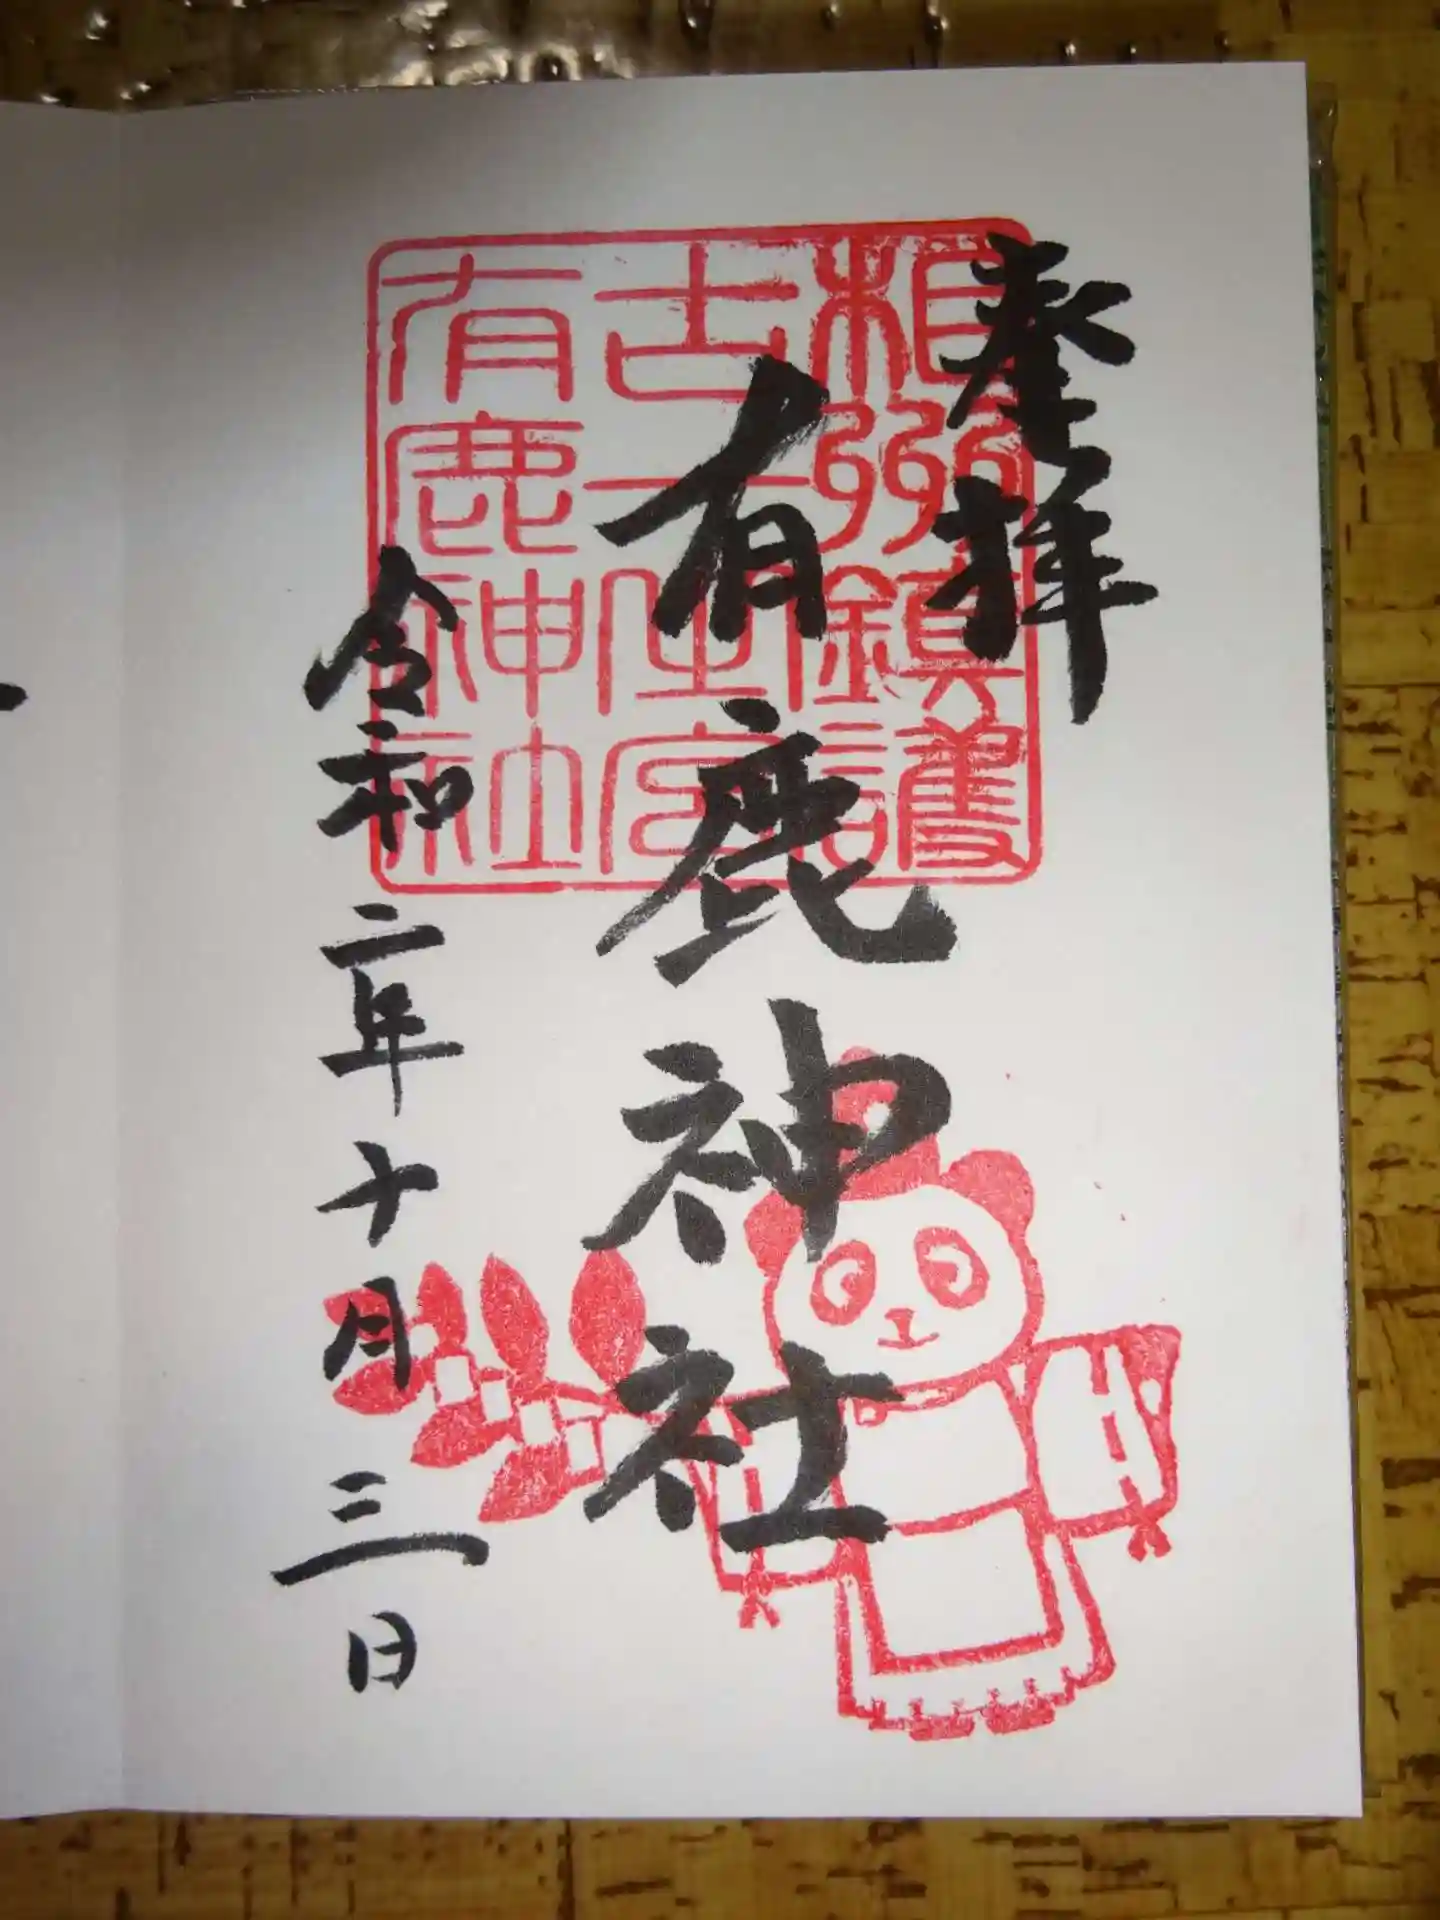 奉拝
相州鎮護
古
有鹿神社
有鹿神社
令和二年十月三日